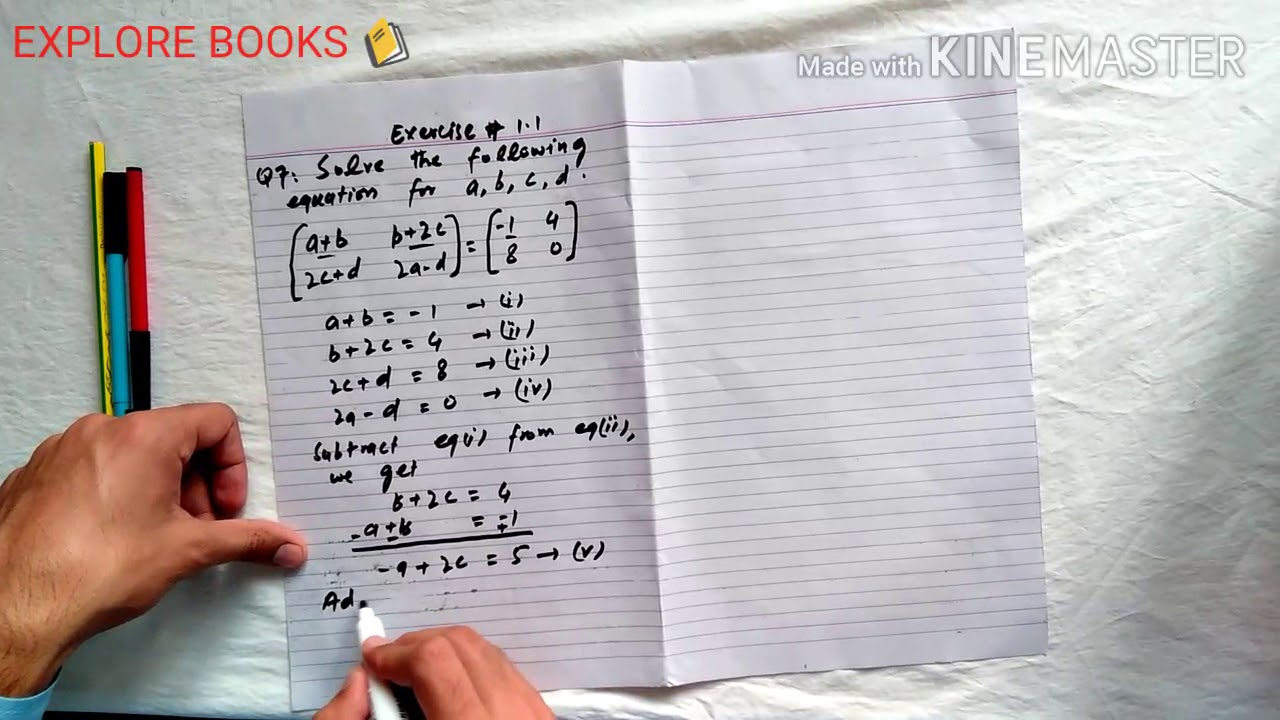 EXPLORE BOOKS
Made with KINEMASTER
Exercise # 1.1
Q7: Solve the following
equation for a, b, c, d.
[a+b b+2c] = [-1 4]
[2c+d 2a-d] [8 0]
a+b = -1 → (i)
b+2c = 4 → (ii)
2c+d = 8 → (iii)
2a-d = 0 → (iv)
Subtract eq(i) from eq(ii),
we get
b+2c = 4
-a±b = -+1
-a+2c = 5 → (v)
Ad